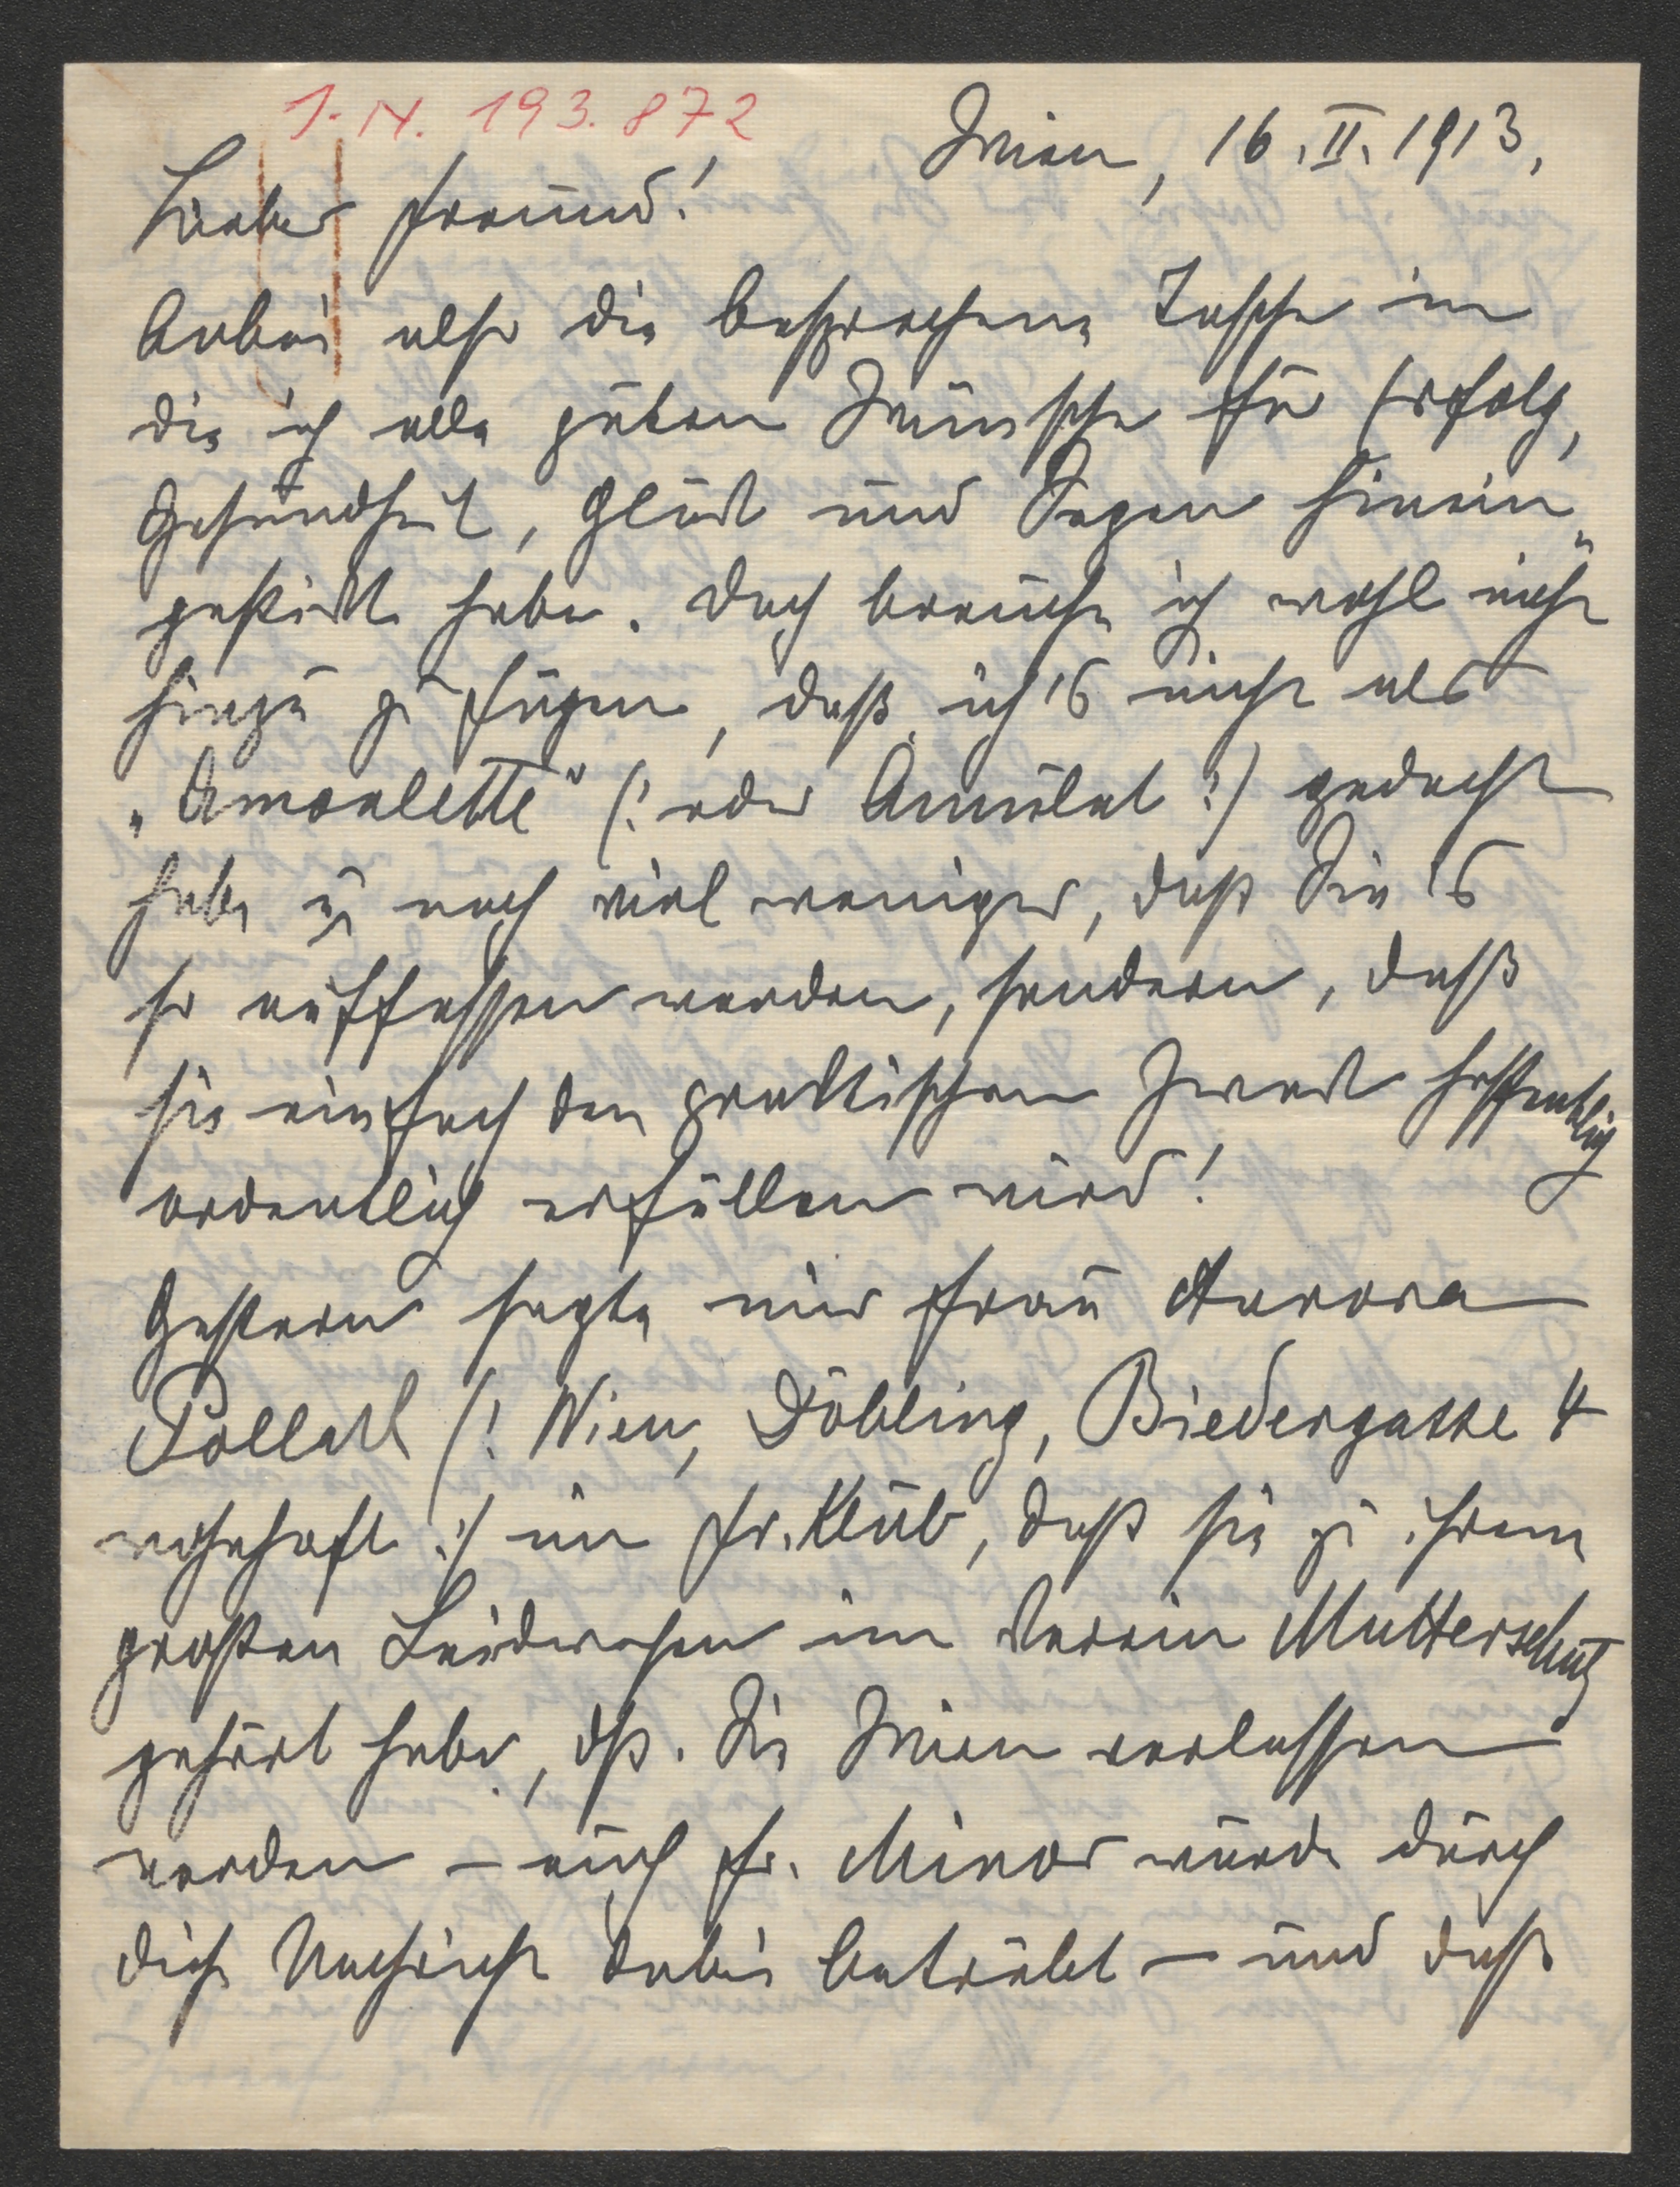 I. N. 193.872
Wien, 16. II. 1913.
Lieber Freund!
Anbei also die besprochene Tasche in
die ich alle guten Wünsche für Erfolg,
Gesundheit, Glück und Segen hinein„
gestickt habe. Doch brauche ich wohl nicht
hinzu zu fügen, daß ich's nicht als
„Amoulette" (: oder Amulet :) gedacht
habe u noch viel weniger, daß Sie 's
so auffassen werden, sondern, daß
sie einfach den praktischen Zweck hoffentlich
ordentlich erfüllen wird!
Gestern sagte mir Frau Aurora
Pollack (: Wien, Döbling, Biedergasse 4
wohnhaft :) im Fr. Klub, daß sie zu ihrem
großen Leidwesen im Verein Mutterschutz
gehört habe, dß. Sie Wien verlassen
werden – auch Fr. Minor wurde durch
diese Nachricht dabei betrübt – und daß